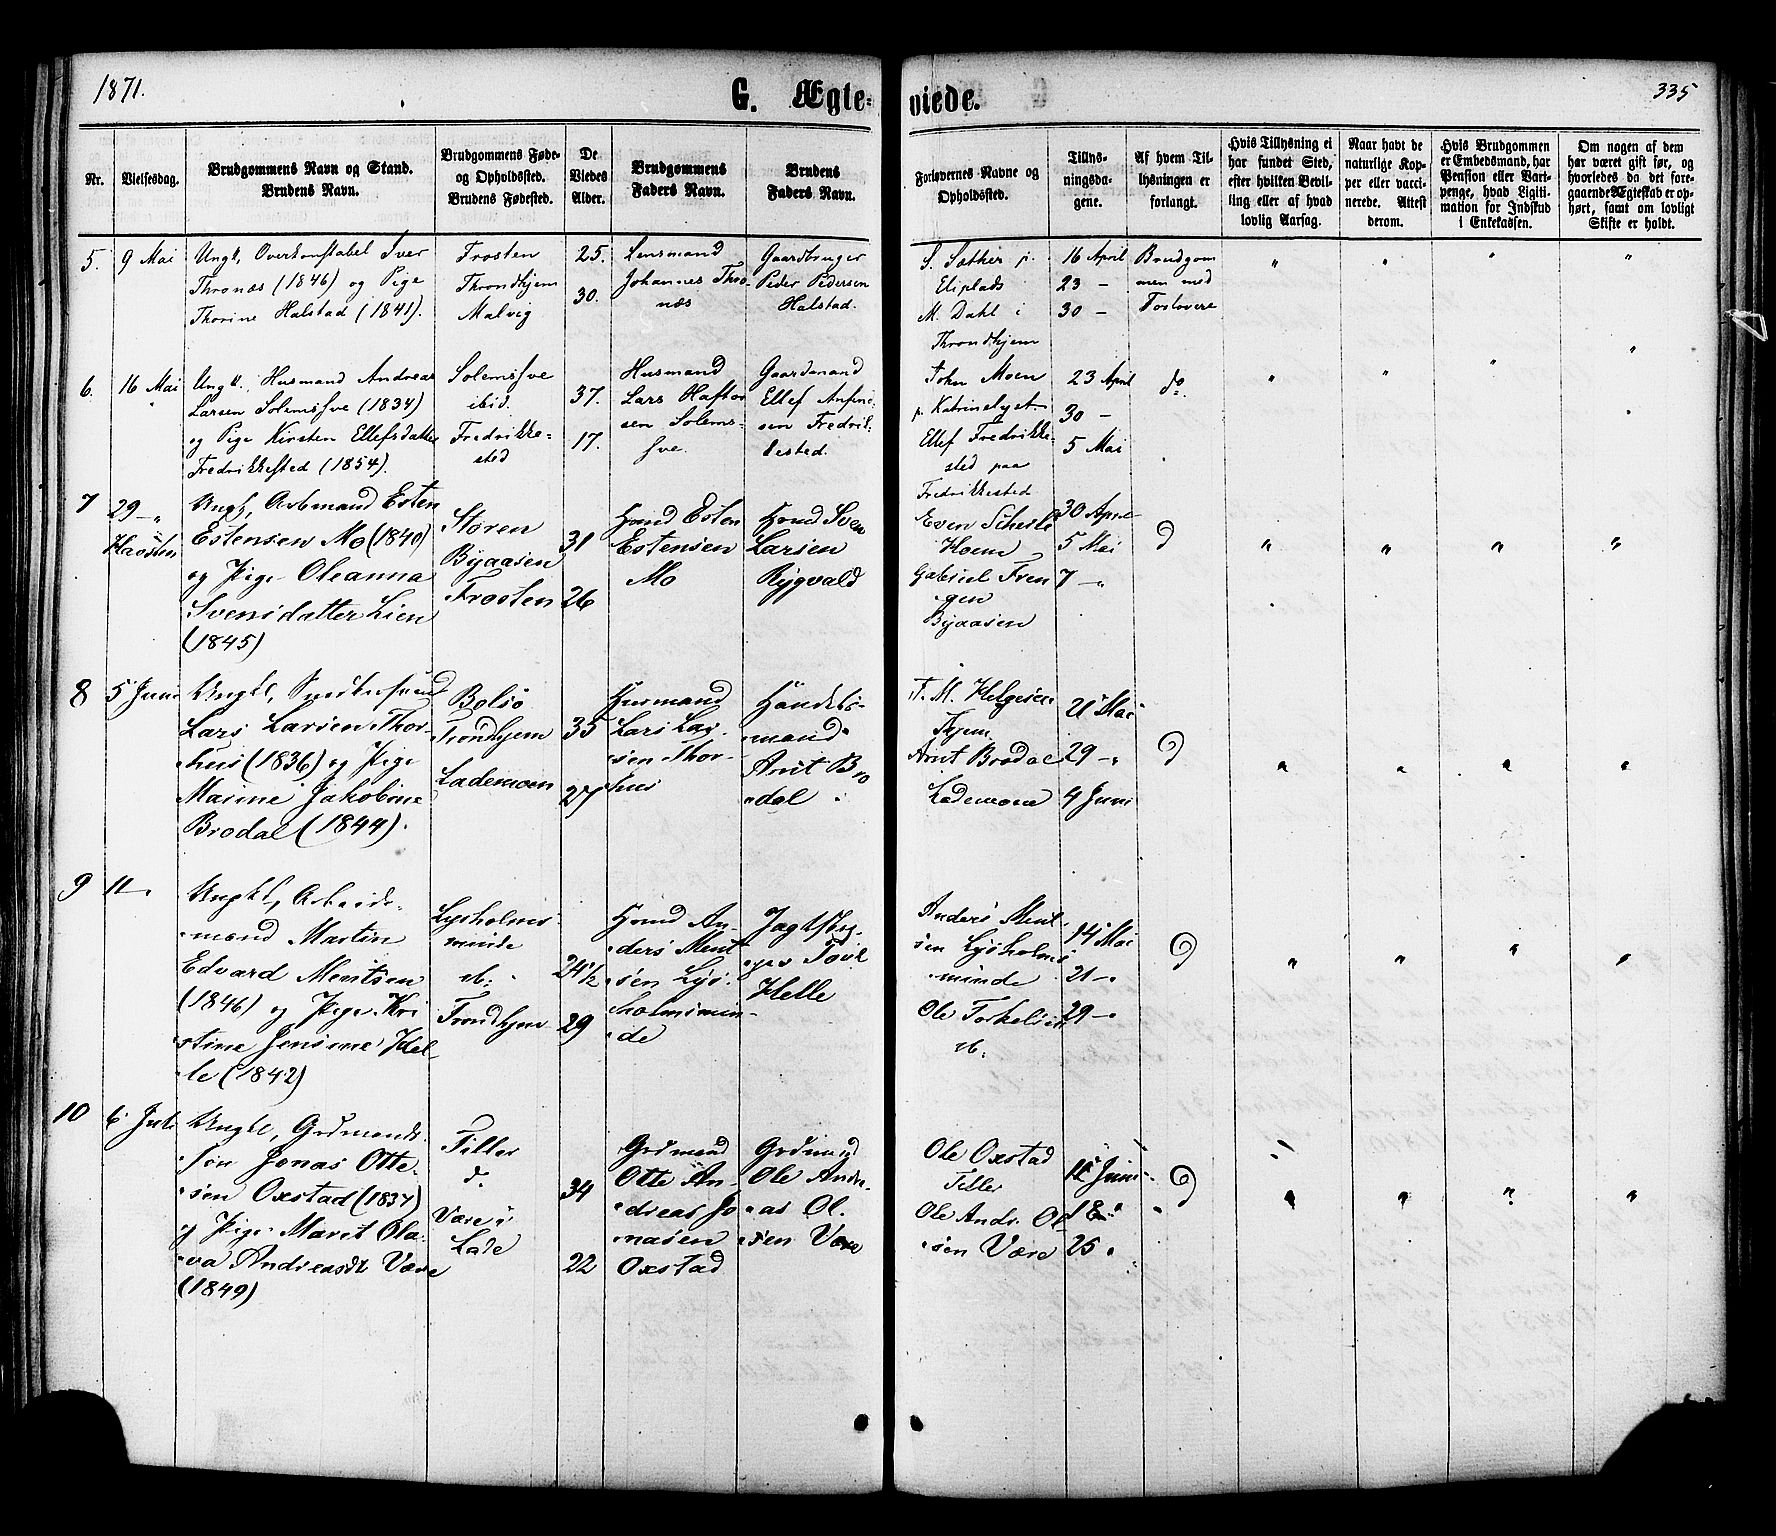 1871.
G. Ægte-
viede.
335
Nr.
Vielsesdag.
Brudgommens Navn og Stand.
Brudens Navn.
Brudgommens Føde-
og Opholdssted.
Brudens Fødested.
De
Viedes
Alder.
Brudgommens
Faders Navn.
Brudens
Faders Navn.
Forlovernes Navne og
Opholdssted.
Tillys-
ningsda-
gene.
Af hvem Til-
lysningen er
forlangt.
Hvis Tillysning ei
har fundet Sted,
efter hvilken Bevil-
ling eller af hvad
lovlig Aarsag.
Naar havt de
naturlige Kop-
per eller vacci-
nerede. Attest
derom.
Hvis Brudgommen
er Embedsmand, har
Pension eller Vart-
penge, hvad Ligiti-
mation for Indskud
i Enkekassen.
Om nogen af dem
har været gift før, og
hvorledes da det fore-
gaaende Ægteskab er op-
hørt, samt om lovligt
Skifte er holdt.
5.
9 Mai
Ungk. Overkonstabel Iver
Thronæs (1846) og Pige
Thorine Halstad (1841).
Frosten
Throndhjem
Malvig
25.
30.
Lensmand
Johannes Thro
næs
Gaardbruger
Peder Pedersen
Halstad.
S. Sæther p.
Eliplads
M. Dahl i
Throndhjem
16 April
23 —
30 —
Brudgom
men med
Forlovere
" " " "
6.
16 Mai
Ungk. Husmand Andreas
Larsen Solemsfve (1834)
og Pige Kirsten Ellefsdatter
Fredrikkested (1854).
Solemsfve
ibid.
Fredrikke-
sted
37.
17.
Husmand
Lars Haftor
sen Solems-
fve.
Gaardmand
Ellef Anfin
sen Fredrik-
kested.
John Moen
p. Katrinelyst
Ellef Fredrikke-
sted paa
Fredrikkested
23 April
30 —
5 Mai
do.
" " " "
7
29 — "
Ungk, Arbmand Esten
Estensen Mo (1840)
og Pige Oleanna
Svensdatter Lien
(1845)
Støren
Byaasen
Frosten
31
26
Hmd Esten
Estensen
Mo
Hmd Sven
Larsen
Rygvald
Even
Hoem
Gabriel Fren
gen
Byaasen
30 April
5 Mai
7 — "
d
" " " "
8
5 Juni
Ungkl,
Lars Larsen Thor-
hus (1836) og Pige
Marine Jakobine
Brodal (1844).
Bolsø
Trondhjem
Lademoen
35
27
Husmand
Lars Lar-
sen Thor-
hus
Handels-
mand
Arnt Bro
dal
T. M. Helgesen
Thjem
Arnt Brodal
Lademoen
21 Mai
29 — "
4 Juni
d
" " " "
9
11 ..
Ungkl, Arbeids-
mand Martin
Edvard Mentsen
(1846) og Pige Kri
stine Jensine Hel-
le (1842)
Lysholms-
minde
ib.
Trondhjem
24 1/2
29
Hmd An-
ders Ment
sen Lys-
holmsmin-
de
Helle
Anders Ment
sen Lysholms
minde
Ole Torkelsen
ib.
14 Mai
21 — "
29 — "
d
" " " "
10
6 Juli
Ungkl, Grdmands-
søn Jonas Otte-
sen Oxstad (1837)
og Pige Marit Ola-
va Andreasdt Være
(1849)
Tiller
d.
Være i
Lade
34
22
Grdmand
Otte An-
dreas Jo
nasen
Oxstad
Grdmand
Ole Andre-
as Ol-
sen Være
Ole Oxstad
Tiller
Ole Andr. Ol-
sen Være
11 Juni
18 "
25 "
d
" " " "